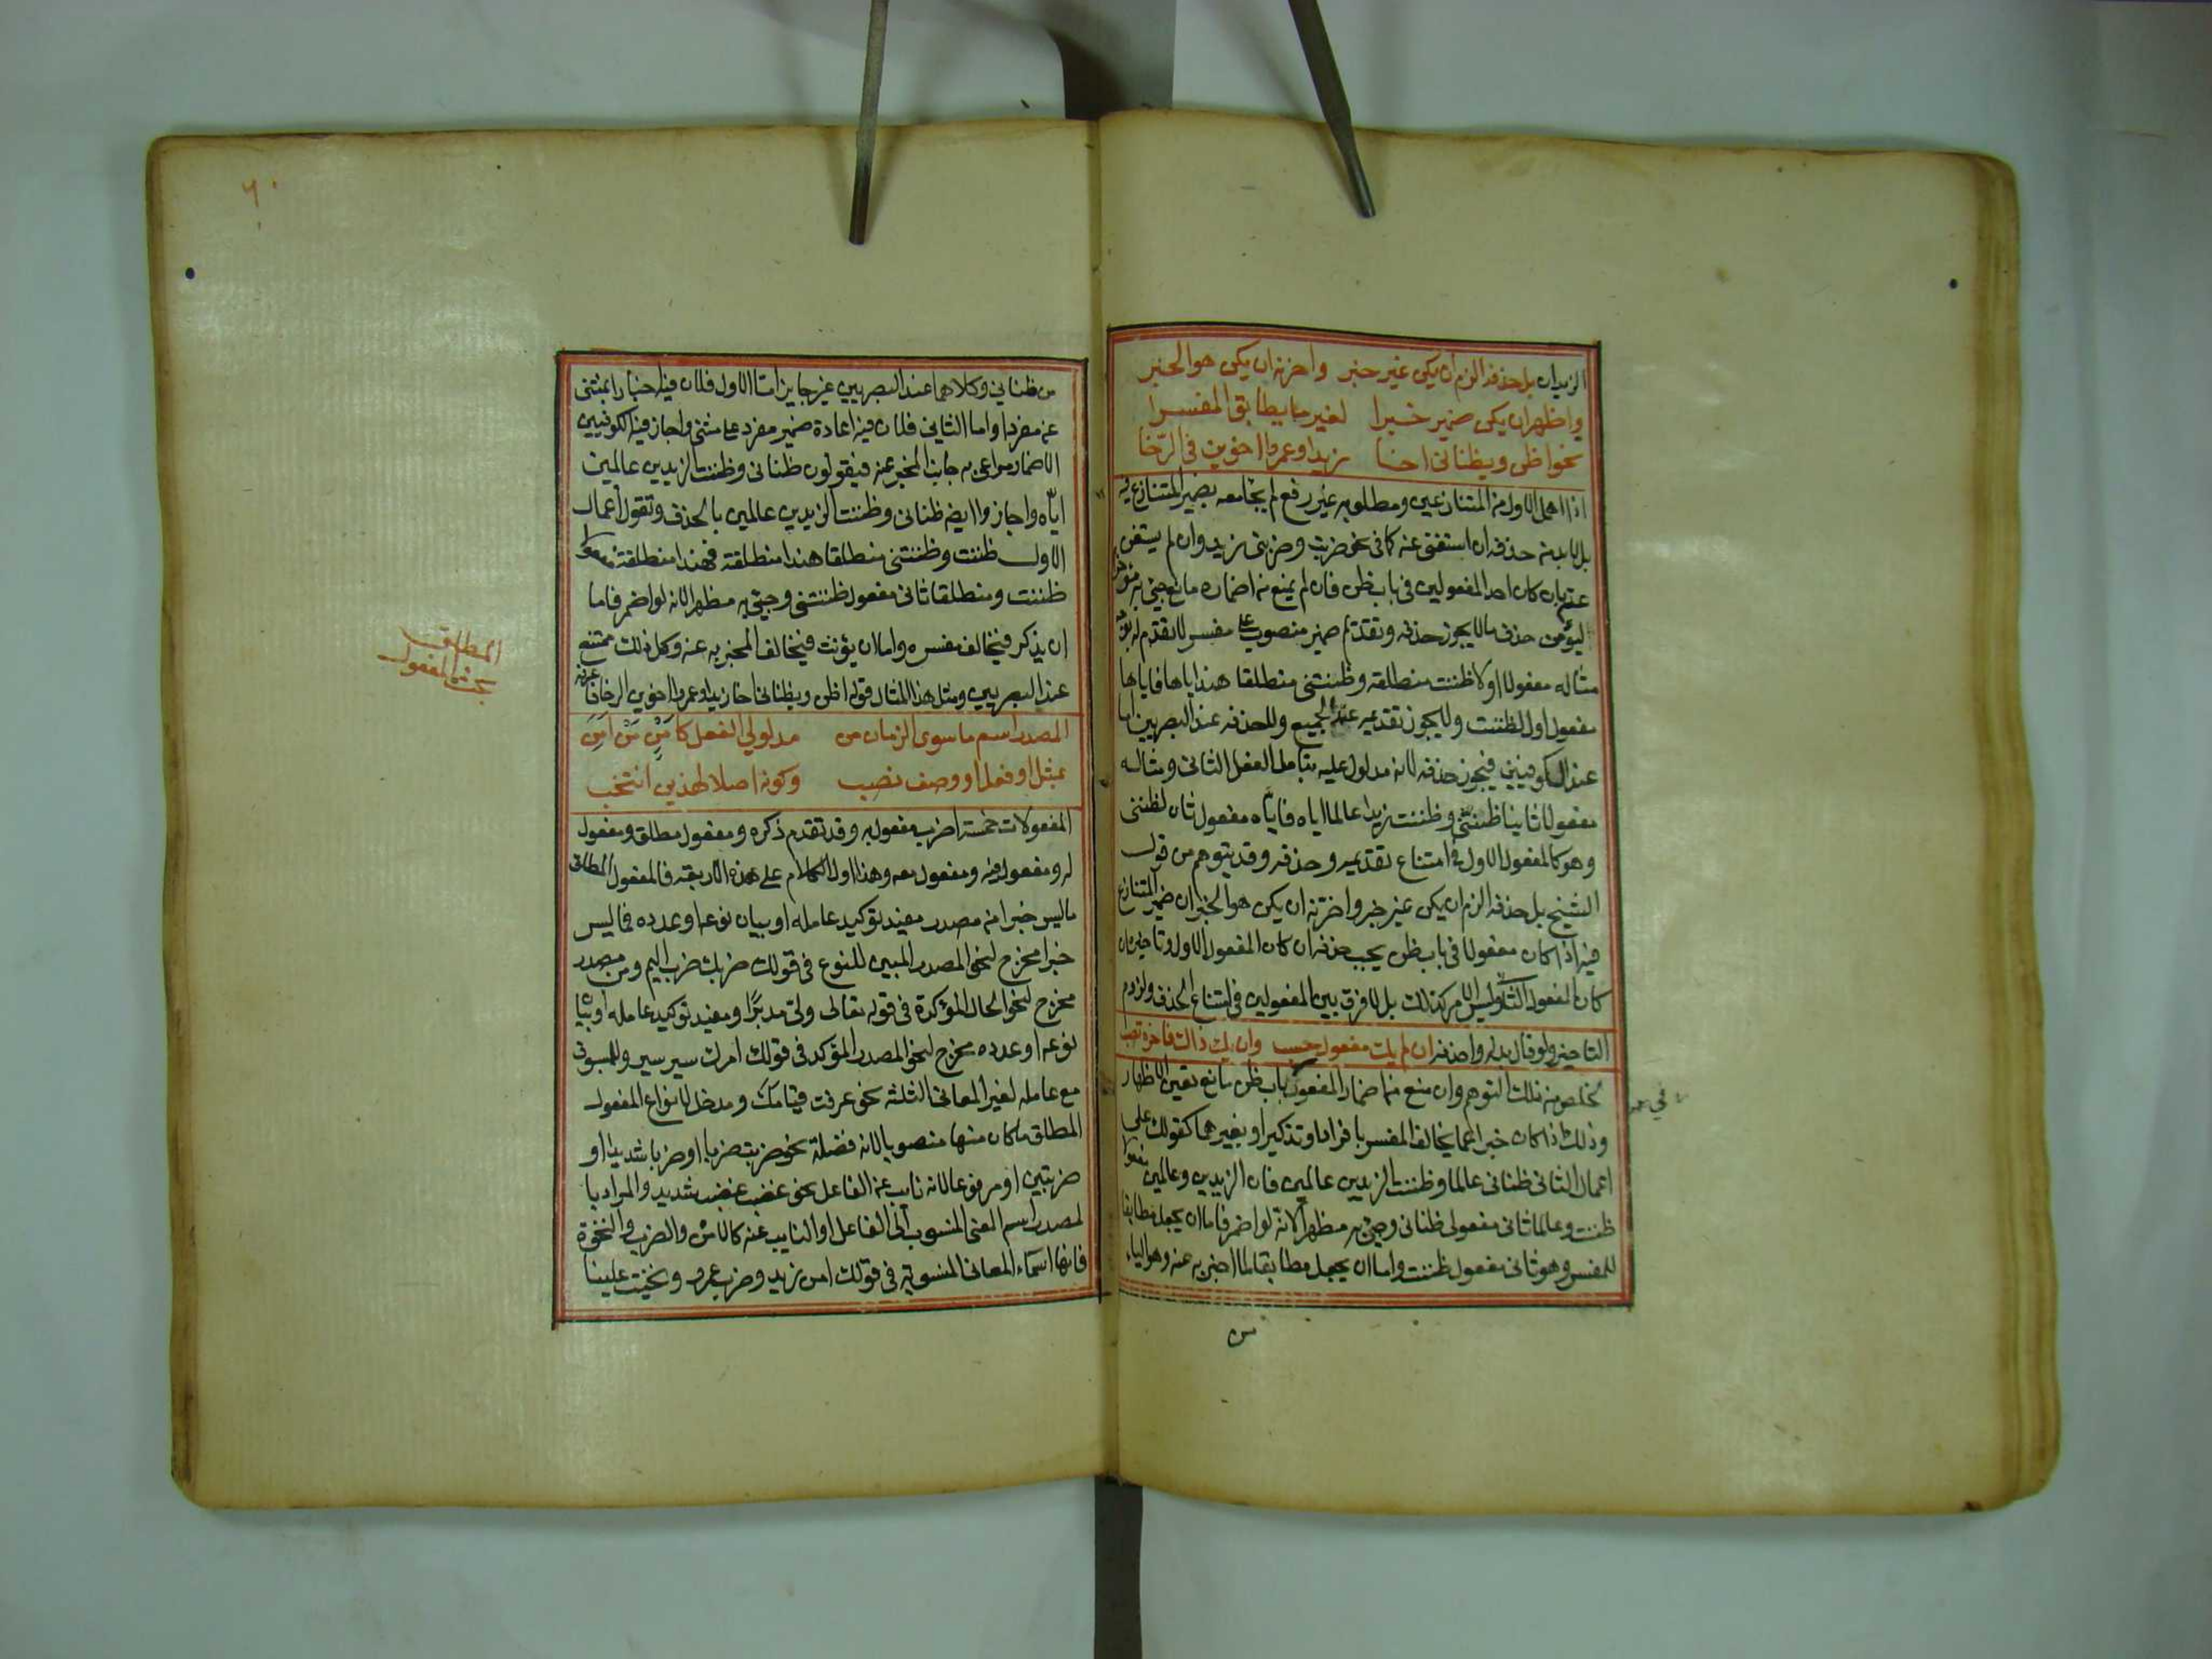 الزيدان بل حذفه الزم ان يكن غير خبر واخرنه ان يكن هو الخبر
واظهر ان يكن ضمير خبرا لغير ما يطابق المفسرا
نحو اظن ويظناني اخا زيدا وعمروا اخوين في الرخا
اذا اهمل الاول من المتنازعين ومطلوبه غير رفع لم يجامعه بضمير المتنازع فيه
بل لا بد من حذفه ان استغنى عنه كما في نحو ضربت وضربني زيد وان لم يستغن
عنه بان كان احد المفعولين في باب ظن فان لم يمنع من اضماره مانع جيئ به مؤخرا
ليؤمن حذف ما لا يجوز حذفه وتقدم ضمير منصوب على مفسر لا تقدم له بوجه
مثاله مفعولا اولا ظننت منطلقة وظننتني منطلقا هند اياها فاياها
مفعول اول لظننت ولا يجوز تقديمه عند الجميع ولا حذفه عند البصريين اما
عند الكوفيين فيجوز حذفه لانه مدلول عليه بفاعل الفعل الثاني ومثاله
مفعولا ثانيا ظننني وظننت زيدا عالما اياه فاياه مفعول ثان لظنني
وهو كالمفعول الاول في امتناع تقديمه وحذفه وقد يتوهم من قول
الشيخ بل حذفه الزم ان يكن غير خبر واخرنه ان يكن هو الخبر ان ضمير المتنازع
فيه اذا كان مفعولا في باب ظن يجب حذفه ان كان المفعول الاول وتاخيره ان
كان المفعول الثاني وليس الامر كذلك بل لا فرق بين المفعولين في امتناع الحذف ولزوم
التاخير ولو قال بدله واحذفه ان لم يك مفعول حسب وان يك ذاك فاخره تصب
تخلص من ذلك التوهم وان منع من اضمار المفعول في باب ظن مانع تعين الاظهار
وذلك اذا كان خبرا عما يخالف المفسر بافراد او تذكير او بغيرهما كقولك على
اعمال الثاني ظناني عالما وظننت الزيدين عالمين فان الزيدين وعالمين مفعولا
ظننت وعالما ثاني مفعولي ظناني وجئ به مظهرا لانه لو اضمر فاما ان يجعل مطابقا
للمفسر وهو ثاني مفعول ظننت واما ان يجعل مطابقا لما اخبر به عنه وهو الياء
من
٦٠
من ظناني وكلاهما عند البصريين غير جايز اما الاول فلان فيه اخبارا بمثنى
عن مفرد واما الثاني فلان فيه اعادة ضمير مفرد على مثنى واجاز فيه الكوفيين
الاضمار مراعى به جانب المخبر عنه فيقولون ظناني وظننت الزيدين عالمين
اياه واجازوا ايضا ظناني وظننت الزيدين عالمين بالحذف وتقول اعمال
الاول ظننت وظننتني منطلقا هندا منطلقة فهندا منطلقة مفعولا
ظننت ومنطلقا ثاني مفعول ظننتني وجيئ به مظهرا لانه لو اضمر فاما
ان يذكر فيخالف مفسره واما ان يؤنث فيخالف المخبر به عنه وكل ذلك ممتنع
عند البصريين ومثل هذا المثال قوله اظن ويظناني اخا زيدا وعمروا اخوين في الرخا فاعرفه
المصدر اسم ما سوى الزمان من مدلولي الفعل كامن من امن
بمثله او فعل او وصف نصب وكونه اصلا لهذين انتخب
المطلق
بحث المفعول
المفعولات خمسة اضرب مفعول به وقد تقدم ذكره ومفعول مطلق ومفعول
له ومفعول فيه ومفعول معه وهذا اول الكلام على هذه الاربعة فالمفعول المطلق
ما ليس خبرا من مصدر مفيد توكيد عامله او بيان نوعه او عدده فما ليس
خبرا مخرج لنحو المصدر المبين للنوع في قولك ضربك ضرب اليم ومن مصدر
مخرج لنحو الحال المؤكدة في قوله تعالى ولى مدبرا ومفيد توكيد عامله او بيان
نوعه او عدده مخرج لنحو المصدر المؤكد في قولك امرك سير سير وللمسوق
مع عامله لغير المعاني الثلثة نحو عرفت قيامك ومدخل لانواع المفعول
المطلق ما كان منها منصوبا لانه فضلة نحو ضربت ضربا او ضربا شديدا او
ضربتين او مرفوعا لانه نايب عن الفاعل نحو غضب غضب شديد والمراد با
لمصدر اسم المعنى المنسوب الى الفاعل او النايب عنه كالامن والضرب والنخوة
فانها اسماء المعاني المنسوبة في قولك امن زيد وضرب عمرو ونخيت علينا